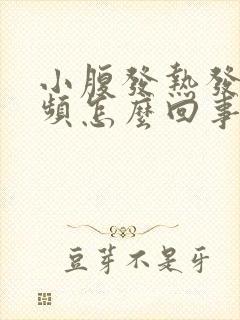 小腹發熱發
頻怎麼回事
豆芽不是牙